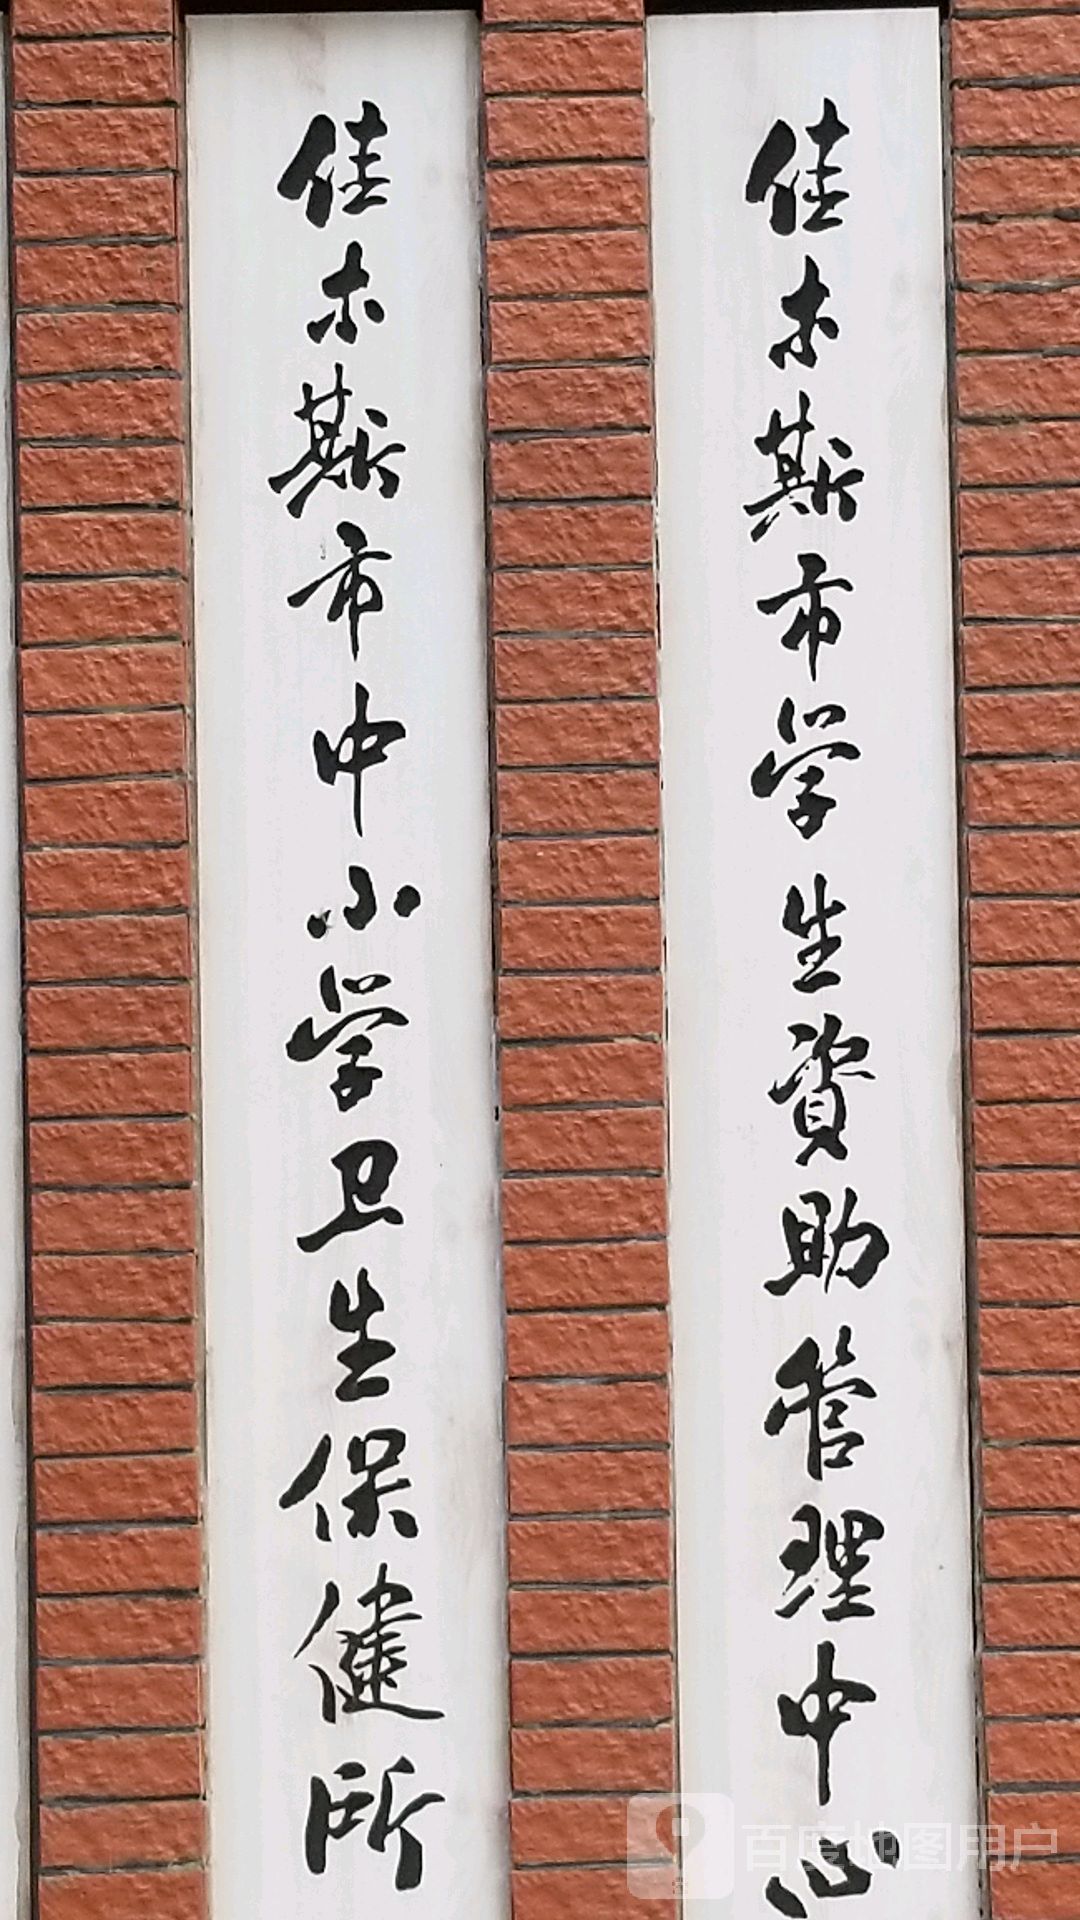 佳木斯市中小学卫生保健所
佳木斯市学生資助管理中心
百度地图用户